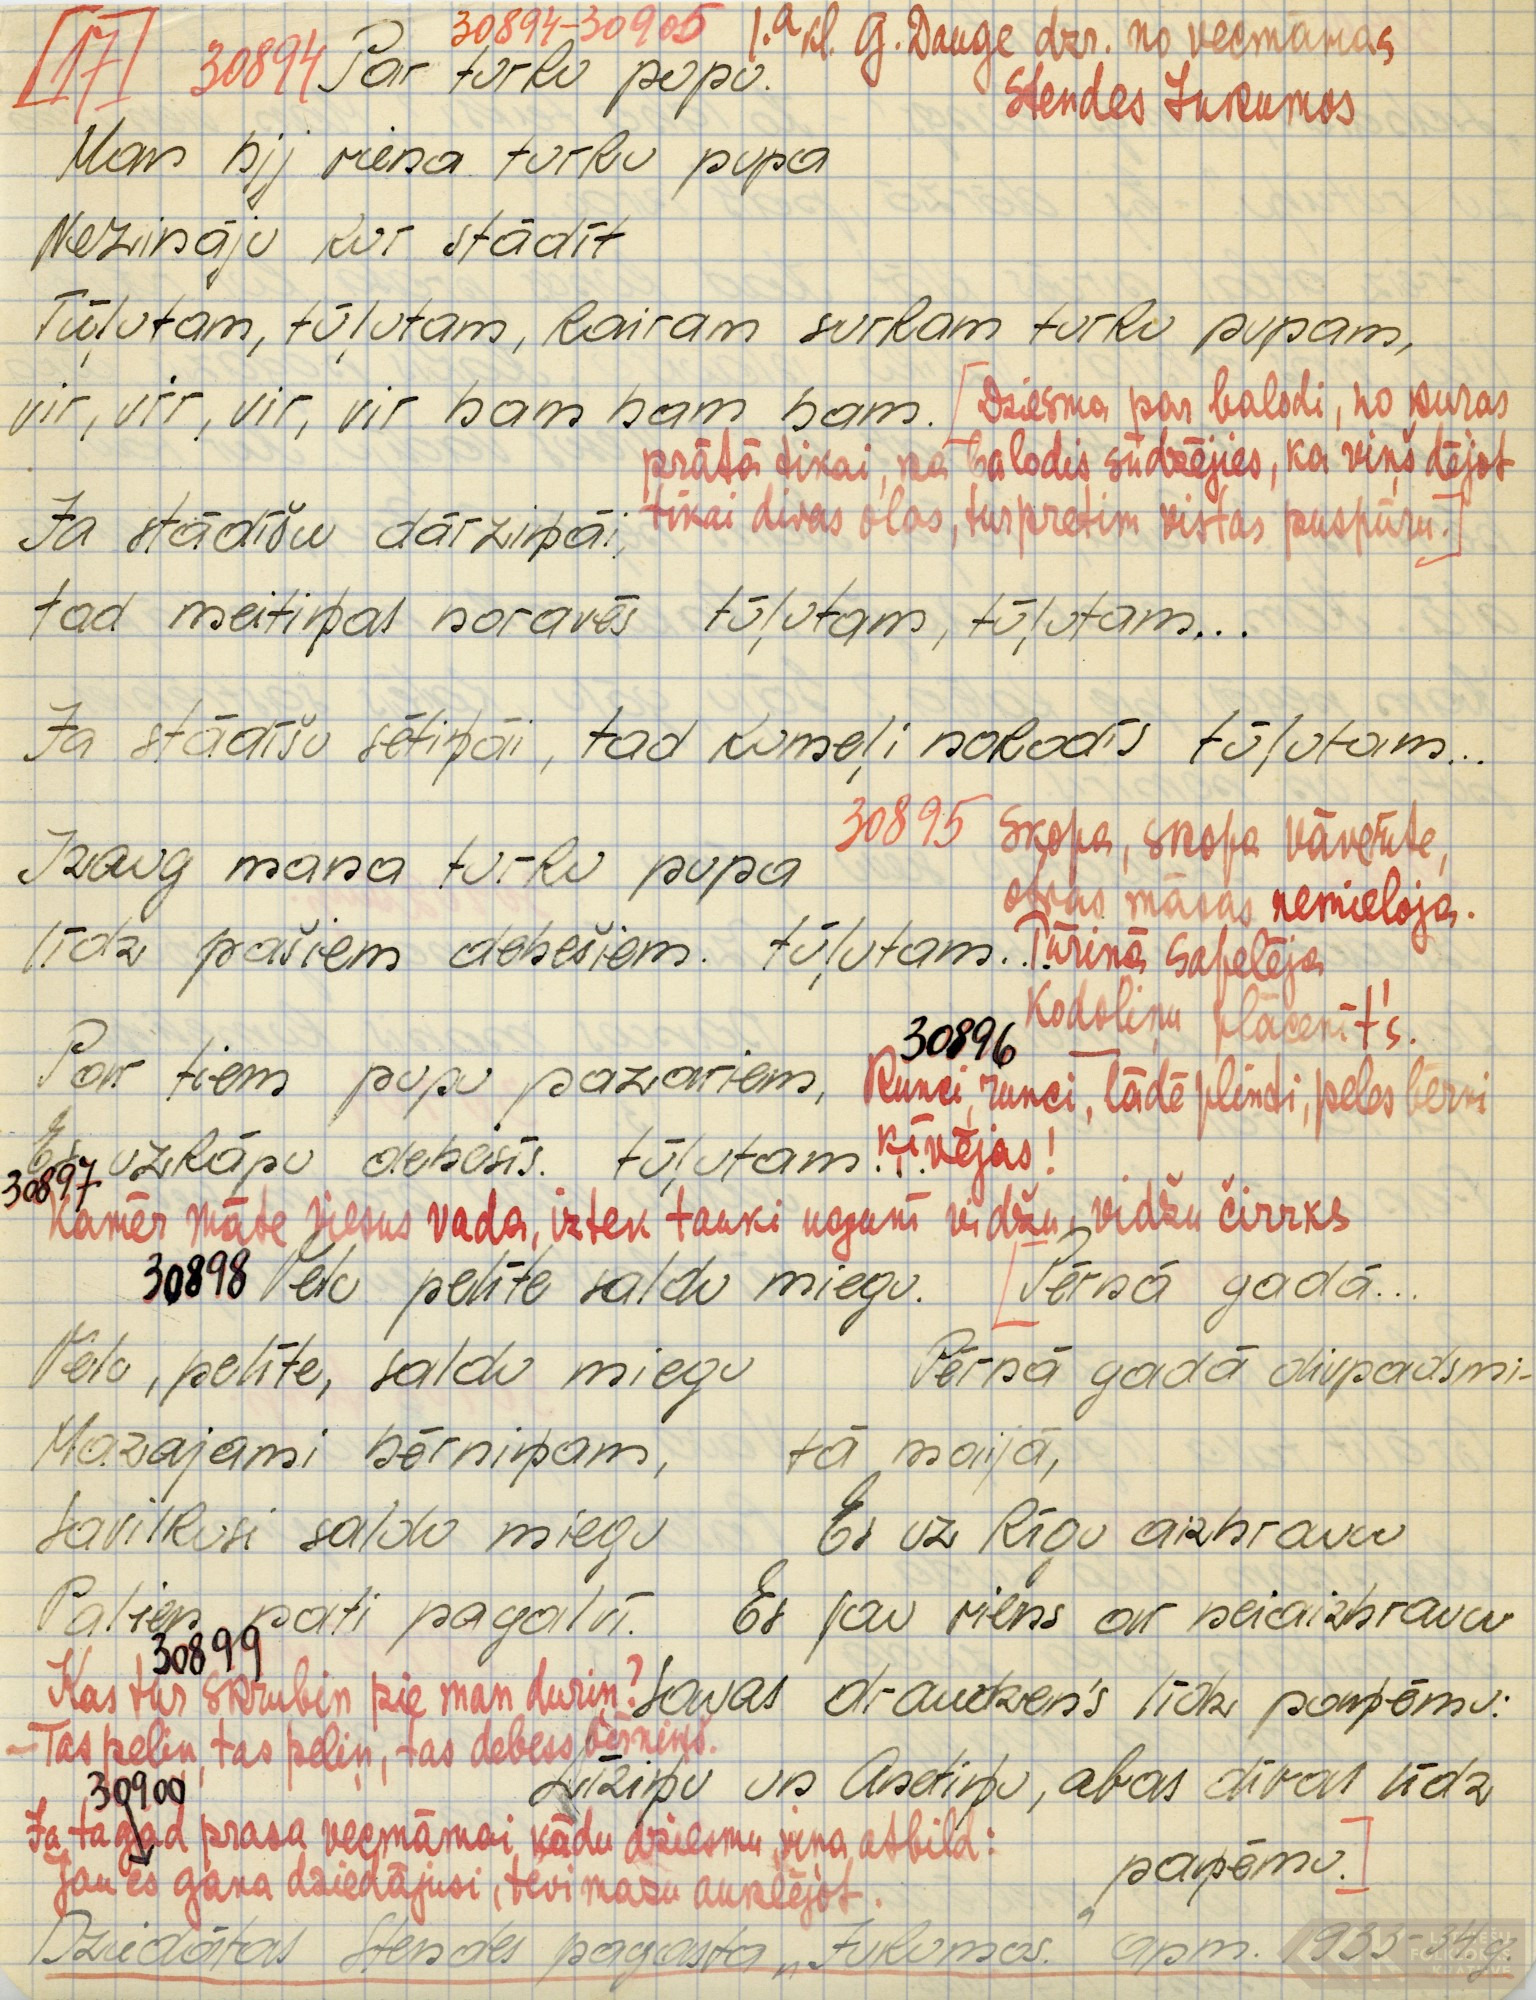 [17] 30894 Par turku pupu.
30894-30905 1.a kl. G. Dauge dzr. no vecmāmas
Stendes Jukumos
Man bij viena turku pupa
Nezināju kur stādīt
Tūļutam, tūļutam, kairam surkam turku pupam,
vir, vir, vir, vir bam bam bam.
[Dziesma par balodi, no kuras
prātā tikai, ka balodis sūdzējies, ka viņš dējot
tikai divas olas, turpretim vistas puspūru.]
Ja stādīšu dārziņāi,
tad meitiņas noravēs tūļutam, tūļutam...
Ja stādīšu sētiņāi, tad kumeļi nokodīs tūļutam...
Izaug mana turku pupa
līdz pašiem debešiem. tūļutam...
30895 Skopa, skopa vāverīte,
otras māsas nemieloja.
Pūriņā sapelēja
Kodoliņu plācenīt's.
Par tiem pupu pazariem,
Es uzkāpu debesīs. tūļutam...
30896
Runci, runci, lādē plinti, peles bērni
ķīvējas!
30897
Kamēr māte viesus vada, iztek tauki ugunī vidžu, vidžu čirrks
30898 Velc pelīte saldu miegu.
Velc, pelīte, saldu miegu
Mazajami bērniņam,
Savilkusi saldu miegu
Palien pati pagaldī.
[Pērnā gadā...
Pērnā gadā divpadsmi-
tā maijā,
Es uz Rīgu aizbraucu
Es jau viens ar neaizbraucu
Savas draudzen's līdz paņēmu:
Līziņu un Anetiņu, abas divas līdz
paņēmu.]
30899
Kas tur skrubin pie man duriņ?
- Tas peliņ, tas peliņ, tas debess bērniņš.
30900
Ja tagad prasa vecmāmai kādu dziesmu, viņa atbild:
Jau es gana dziedājusi, tevi mazu auklējot.
Dziedātas Stendes pagasta "Jukumos" apm. 1933-34g.
LATVIEŠU
FOLKLORAS
KRĀTUVE